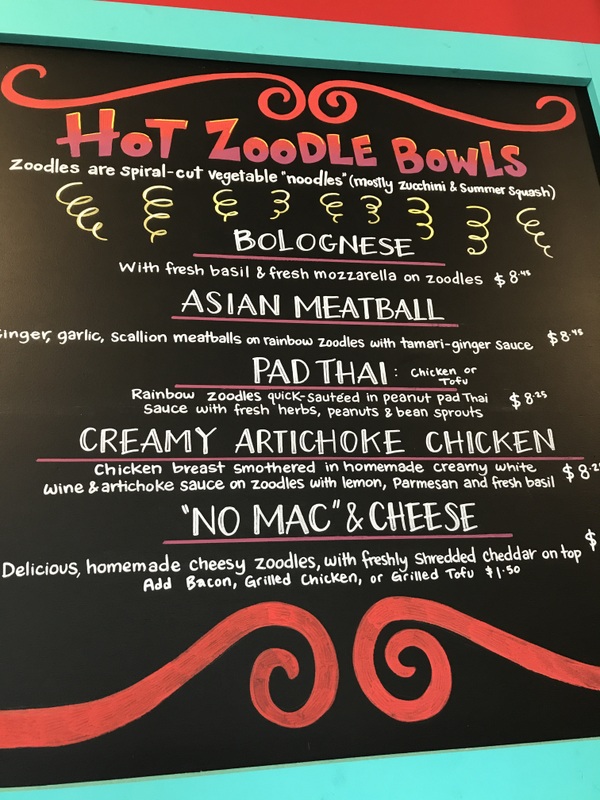 HOT ZOODLE BOWLS
Zoodles are spiral-cut vegetable "noodles" (mostly Zucchini & Summer Squash)
BOLOGNESE
With fresh basil & fresh mozzarella on zoodles $8.45
ASIAN MEATBALL
Ginger, garlic, scallion meatballs on rainbow zoodles with tamari-ginger sauce $8.45
PAD THAI: chicken or
Tofu
Rainbow zoodles quick-sautéed in peanut pad Thai $8.25
sauce with fresh herbs, peanuts & bean sprouts
CREAMY ARTICHOKE CHICKEN
Chicken breast smothered in homemade creamy white $8.2
wine & artichoke sauce on zoodles with lemon, Parmesan and fresh basil
"NO MAC" & CHEESE
Delicious, homemade cheesy zoodles, with freshly shredded cheddar on top $
Add Bacon, Grilled Chicken, or Grilled Tofu $1.50